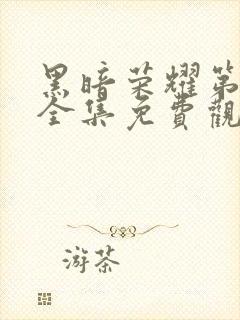 黑暗荣耀第
全集免費觀
游茶